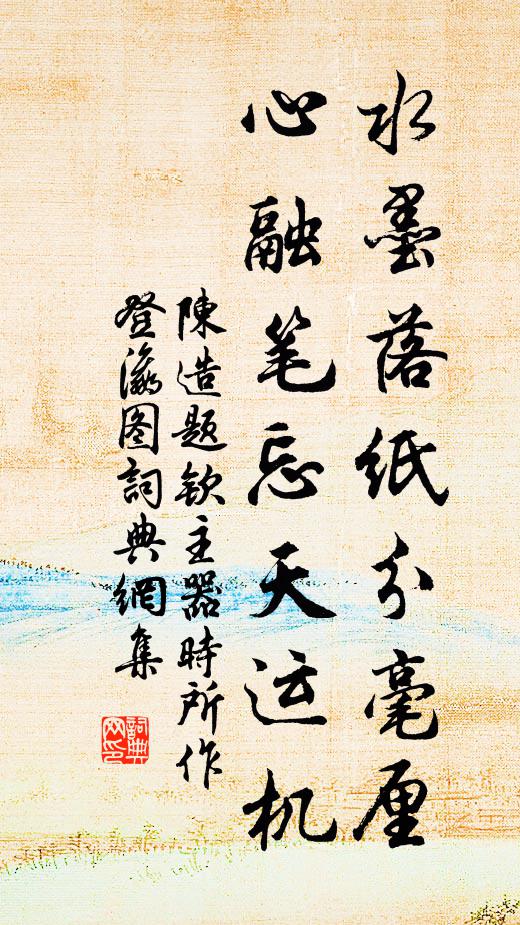 水墨落纸分毫厘
心融笔忘天运机
陳造题钦主器時所作
登瀛图詞典網集
詞典